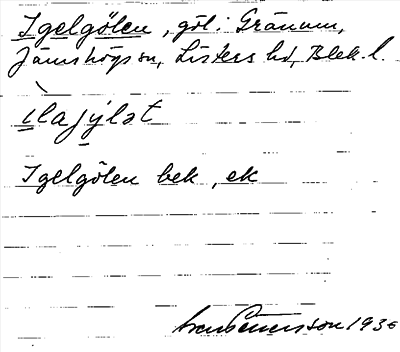 Igelgölen, göl i Gränum,
Jämshögs sn, Listers hd, Blek. l.
ìlajýlət
Igelgölen bek, ek
1930